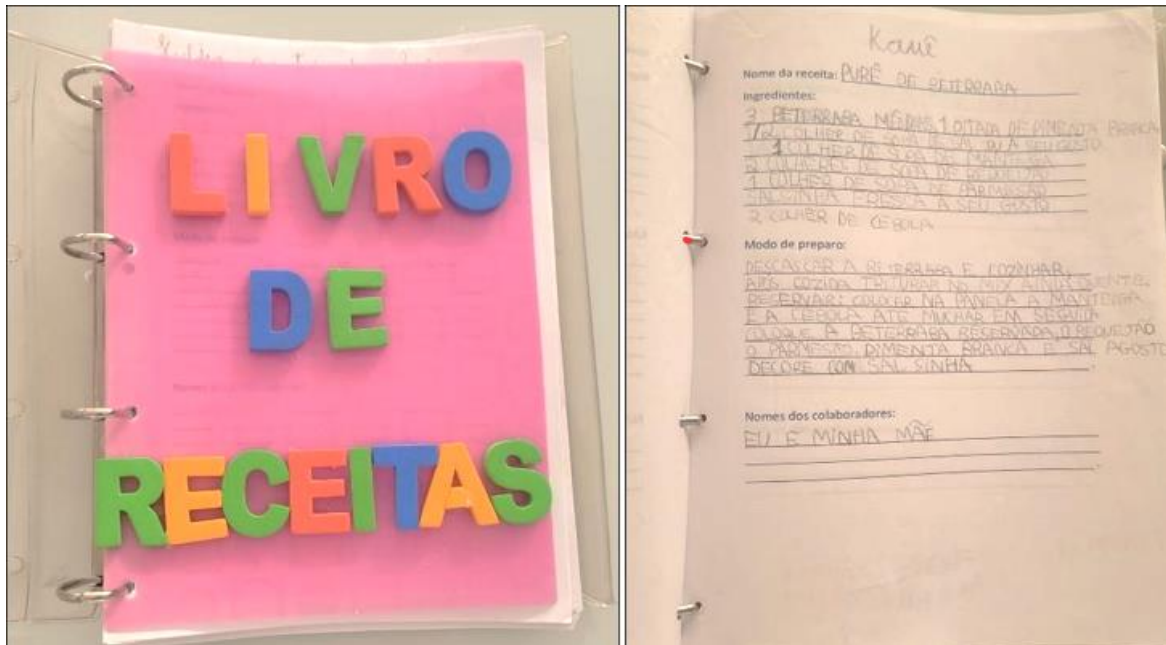 LIVRO
DE
RECEITAS
Kauê
Nome da receita: PURÊ DE BETERRABA
Ingredientes:
3 BETERRABA MÉDIAS, 1 PITADA DE PIMENTA BRANCA
1/2 COLHER DE SOPA DE SAL OU A SEU GOSTO
1 COLHER DE SOPA DE MANTEIGA
2 COLHERES DE SOPA DE REQUEIJÃO
1 COLHER DE SOPA DE PARMESÃO
SALSINHA FRESCA A SEU GOSTO
2 COLHER DE CEBOLA
Modo de preparo:
DESCASCAR A BETERRABA E COZINHAR.
APÓS COZIDA TRITURAR NO MIX AINDA QUENTE.
RESERVAR: COLOCAR NA PANELA A MANTEIGA
E A CEBOLA ATE MUCHAR EM SEGUIDA
COLOQUE A BETERRABA RESERVADA, O REQUEIJÃO
O PARMESÃO, PIMENTA BRANCA E SAL AGOSTO
DECORE COM SAL SINHA
Nomes dos colaboradores:
EU E MINHA MÃE